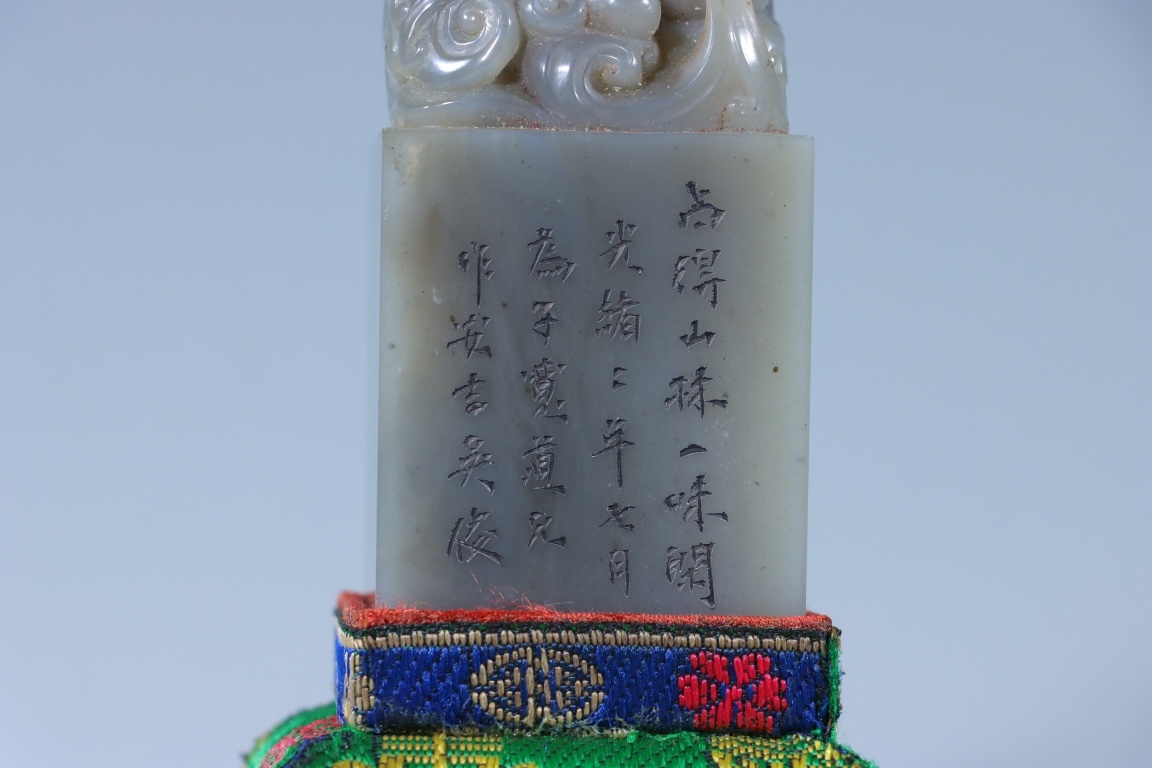 占得山林一味閒
光緒二年七月
為子寬道兄
作安吉吳俊